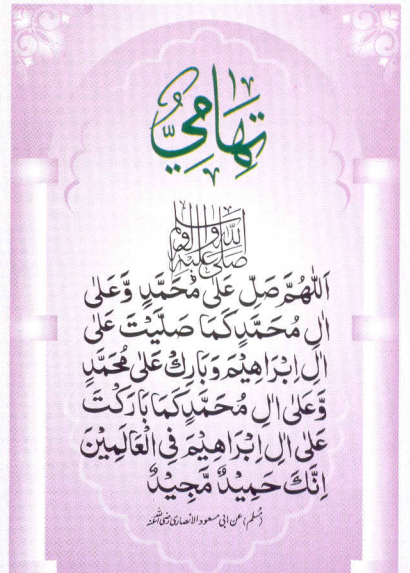 تِهَامِيٌّ
صَلَّى اللّٰهُ عَلَيْهِ وَآلِهِ وَسَلَّمَ
اَللّٰهُمَّ صَلِّ عَلٰى مُحَمَّدٍ وَّعَلٰى
اٰلِ مُحَمَّدٍ كَمَا صَلَّيْتَ عَلٰى
اٰلِ اِبْرَاهِيْمَ وَبَارِكْ عَلٰى مُحَمَّدٍ
وَّعَلٰى اٰلِ مُحَمَّدٍ كَمَا بَارَكْتَ
عَلٰى اٰلِ اِبْرَاهِيْمَ فِى الْعَالَمِيْنَ
اِنَّكَ حَمِيْدٌ مَّجِيْدٌ
(مسلم) عن ابی مسعود الانصاری رضی اللہ عنہ